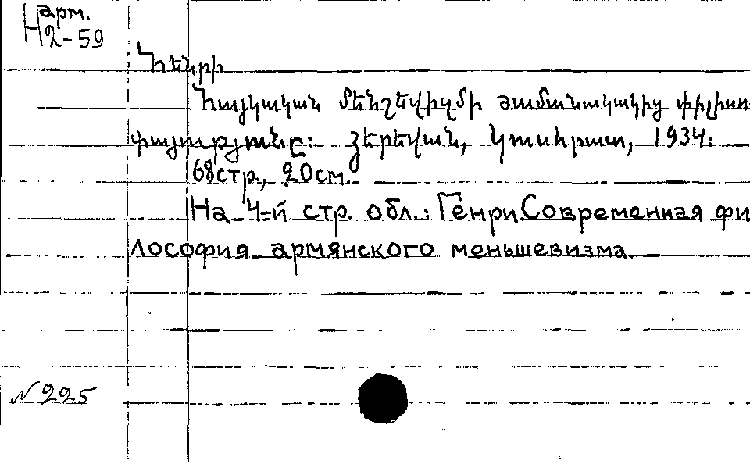 арм.
Н2-59
Հենրի
Հայկական մենշևիզմի ժամանակակից փիլիսո
փայությունը: Յերեվան, Կուսհրատ, 1934:
68стр., 20см.
На 4-й стр. обл.: Генри. Современная фи
лософия армянского меньшевизма.
№225